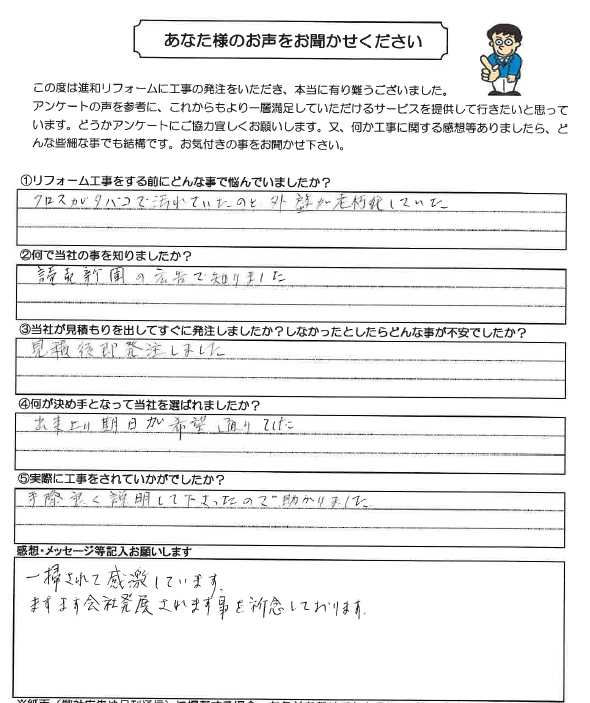 あなた様のお声をお聞かせください
この度は進和リフォームに工事の発注をいただき、本当に有り難うございました。
アンケートの声を参考に、これからもより一層満足していただけるサービスを提供して行きたいと思って
います。どうかアンケートにご協力宜しくお願いします。又、何か工事に関する感想等ありましたら、ど
んな些細な事でも結構です。お気付きの事をお聞かせ下さい。
①リフォーム工事をする前にどんな事で悩んでいましたか？
クロスがタバコで汚れていたのと、外壁が老朽化していた
②何で当社の事を知りましたか？
読売新聞の広告で知りました
③当社が見積もりを出してすぐに発注しましたか？しなかったとしたらどんな事が不安でしたか？
見積後即発注しました
④何が決め手となって当社を選ばれましたか？
出来上り期日が希望通りでした
⑤実際に工事をされていかがでしたか？
手際良く説明して下さったので助かりました
感想・メッセージ等記入お願いします
一掃されて感激しています。
ますます会社発展されます事を祈念しております。